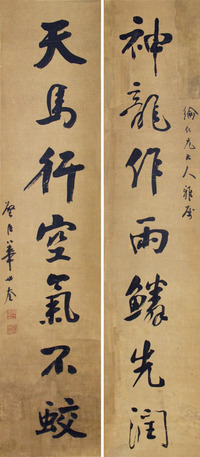 大人雅屬
神龍作雨鱗先潤
天馬行空氣不蛟
華世奎